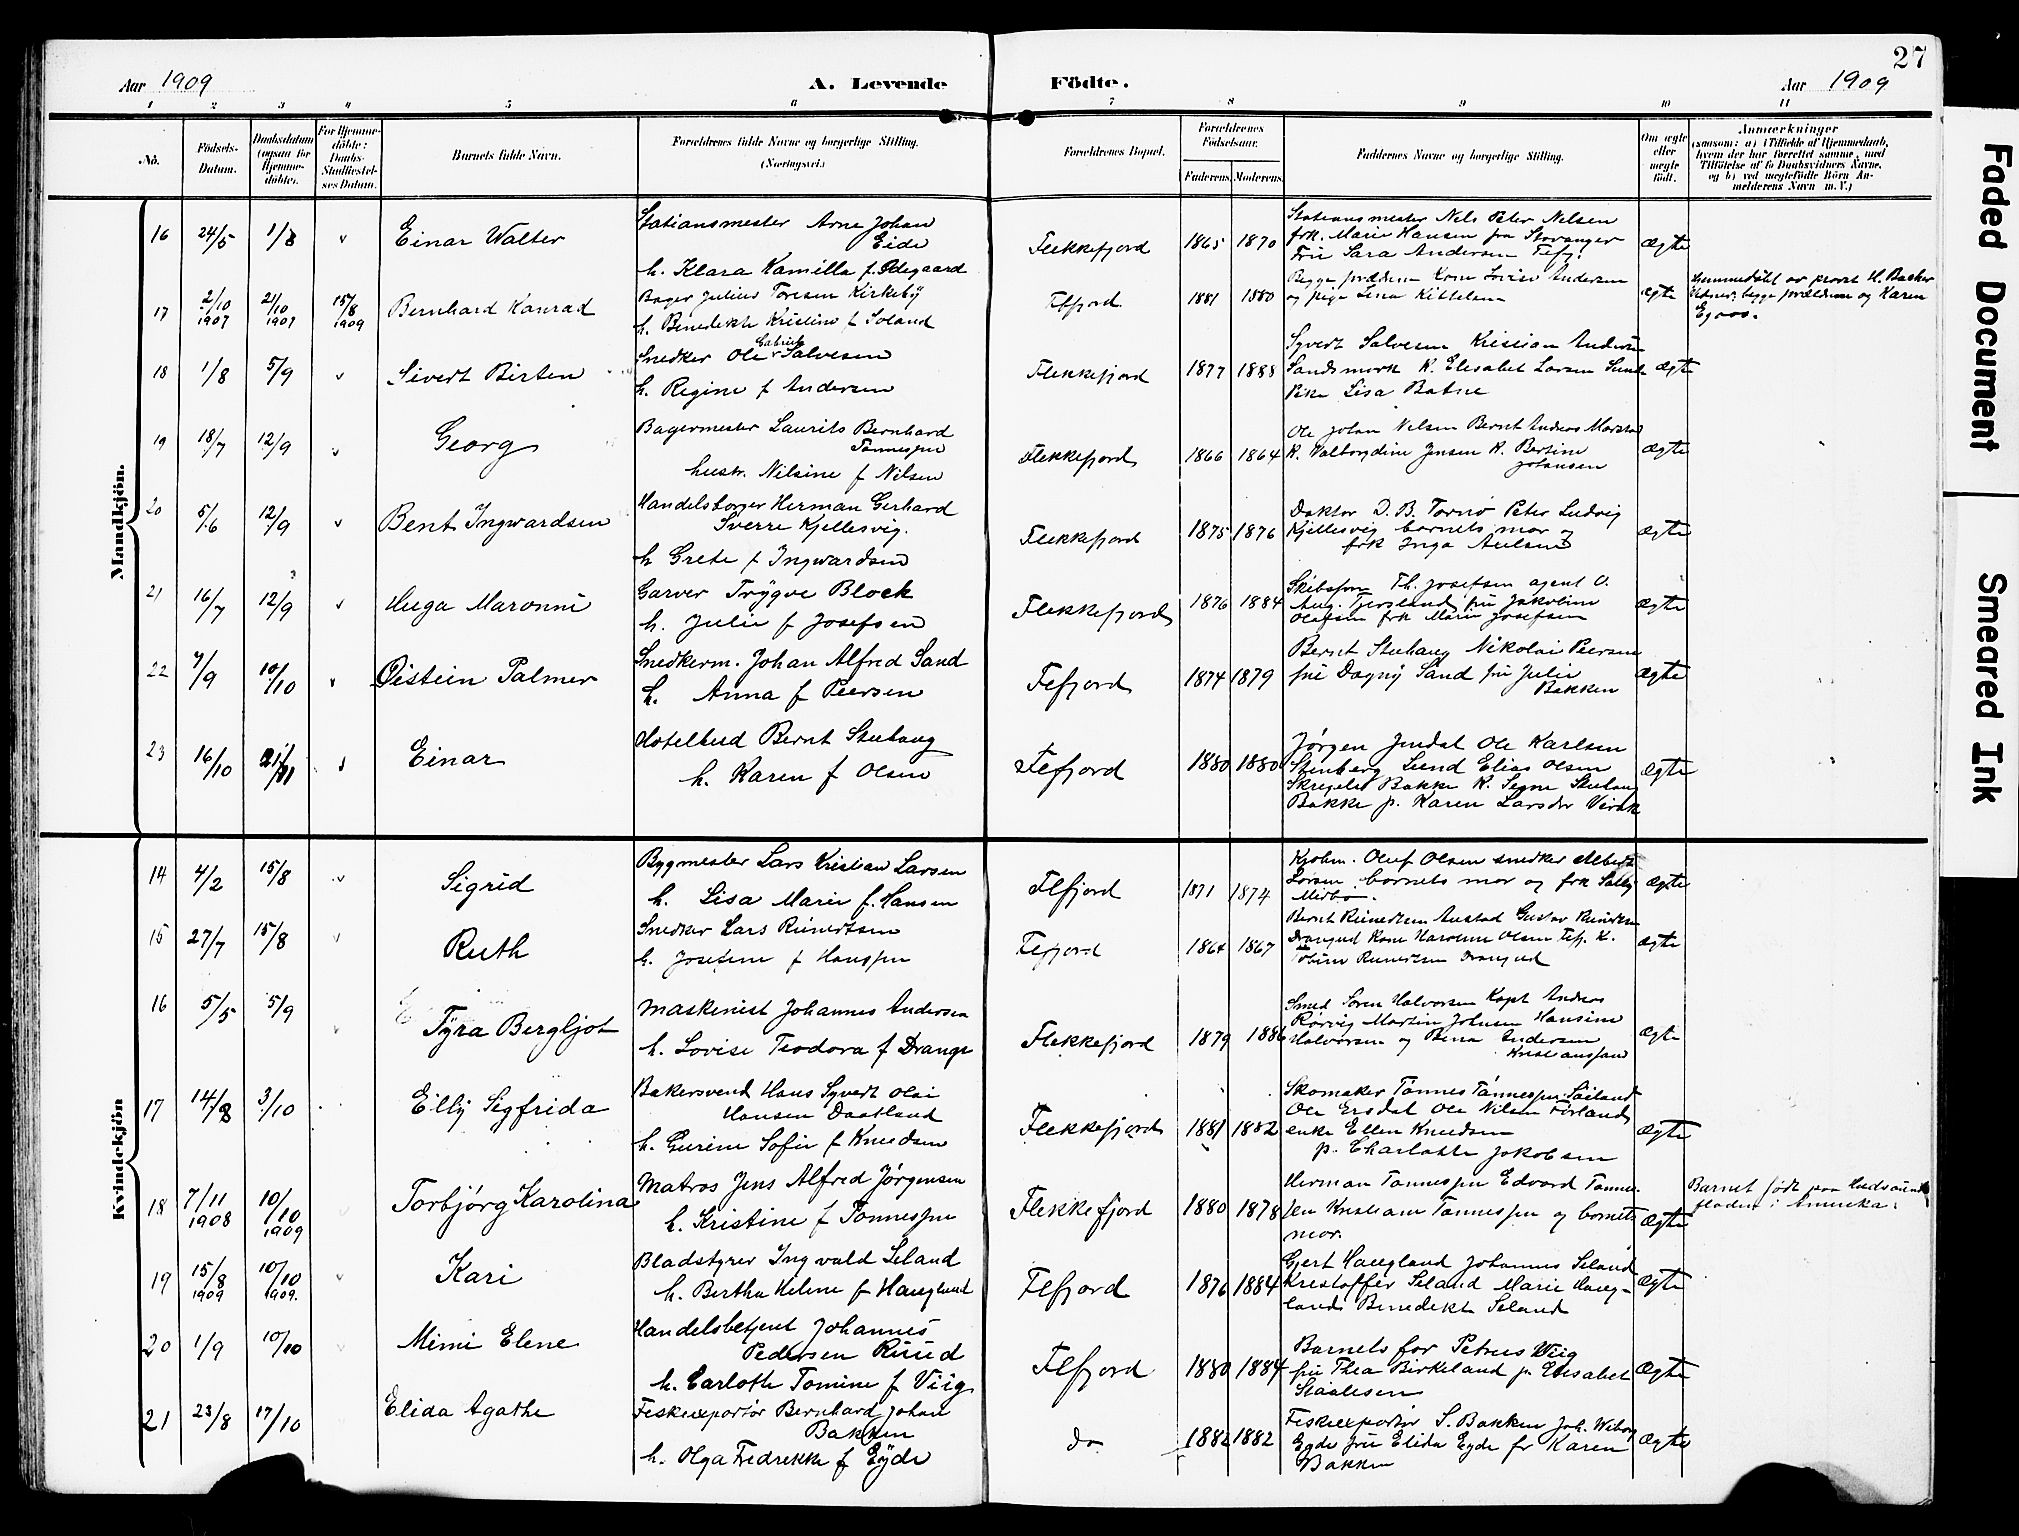 27
Aar 1909
A. Levende
Födte.
Aar 1909
1 2 3 4 5 6 7 8 9 10 11
No.
Födsels-Datum.
Daabsdatum (ogsaa for Hjemmedöbte).
For Hjemmedöbte: Daabs-Stadfæstelses Datum.
Barnets fulde Navn.
Forældrenes fulde Navne og borgerlige Stilling. (Næringsvei.)
Forældrenes Bopæl.
Forældrenes Födselsaar.
Faderens. Moderens.
Faddernes Navne og borgerlige Stilling.
Om ægte eller uægte födt.
Anmærkninger
(saasom: a) i Tilfælde af Hjemmedaab, hvem der har forrettet samme, med Tilföielse af to Daabsvidners Navne, og b) ved uægtefödte Börn Anmelderens Navn m. V.)
Mandkjön.
16 24/5 1/8 Einar Walter
Stationsmester Arne Johan Eide
h. Klara Kamilla f. Ødegaard
Flekkefjord 1865 1870
Stationsmester Nels Peter Nilsen
frk. Marie Hansen fra Stavanger
Fru Sara Andersen
ægte
17 2/10 1907 21/10 1907 15/8 1909 Bernhard Konrad
Bager Julius Toresen Kirkeby
h. Benedikte Kristine f Soland
Flfjord 1881 1880
Begge forældrene Kone Lovise Andersen
og pige Lina Kittelsen
ægte
Hjemmedöbt av provst H. Barker
begge forældrene og Karen
18 1/8 5/9 Sivert Birten
Snedker Ole Gabriel Salvesen
h. Regine f Andersen
Flekkefjord 1877 1888
Syvert Salvesen Kristian Andersen
K. Elisabet Larsen Sund
Pike Lisa Batne
ægte
19 18/7 12/9 Georg
Bagermester Laurits Bernhard Tønnesen
hustr. Nilsine f Nilsen
Flekkefjord 1866 1864
Ole Johan Nilsen Bernt Andreas
K. Valborgdine Jensen K. Bertine Johansen
ægte
20 5/6 12/9 Bent Ingwardsen
Handelsborger Herman Gerhard
Sverre Kjellesvig.
h Grete f Ingwardsen
Flekkefjord 1875 1876
Doktor D. B. Tornø Peter Ludvig
Kjellesvig barnets mor og
frk Inga
ægte
21 16/7 12/9 Hugo Maronni
Garver Trygve Block
h. Julie f Josefsen
Flekkefjord 1876 1884
Th. Josefsen agent O.
Aug. Tjorsland fru Jakobine
Olafsen frk Marie Josefsen
ægte
22 7/9 10/10 Øistein Palmer
Snedkerm. Johan Alfred Sand
h. Anna f Peersen
Fefjord 1874 1879
Bernt Stuhaug Nikolai Peersen
fru Dagny Sand fru Julie
Bakken
ægte
23 16/10 21/11 Einar
Bernt Stuhaug
h. Karen f Olsen
Fefjord 1880 1880
Jørgen Jendal Ole Karlsen
Stenberg Lund Elias Olsen
Bakke K. Signe Stuhaug
Bakke p. Karen Larsdtr
ægte
Kvindekjön
14 4/2 15/8 Sigrid
Bygmester Lars Kristian Larsen
h. Lisa Marie f. Hansen
Flfjord 1871 1874
Kjøbm. Oluf Olsen snedker Albert
Larsen, barnets mor og frk Sally
ægte
15 27/7 15/8 Ruth
Snedker Lars Reinertsen
h. Josefine f Hanssen
Fefjord 1864 1867
Bernt Reinertsen Austad Gustav Reinertsen
Drangeid Kone Karoline Olsen Fefj. K.
Tobine Reinertsen Drangeid
ægte
16 5/5 5/9 Tyra Bergljot
Maskinist Johannes Andersen
h. Lovise Teodora f Drange
Flekkefjord 1879 1886
Smed Søren Halvorsen Kapt Andreas
Rørvig Martin Johnsen Hansine
Halvorsen og Bena Andersen
Kristiansen
ægte
17 14/8 3/10 Elly Sigfrida
Bakersvend Hans Syvert Olai
Hansen Daatland
h. Gurine Sofie f Knudsen
Flekkefjord 1881 1882
Skomaker Tønnes Tønnessen Søiland
Ole Ersdal Ole Nilsen Førland
enke Ellen Knudsen
p. Charlotte Jakobsen
ægte
18 7/11 1908 10/10 1909 Torbjørg Karolina
Matros Jens Alfred Jørgensen
h. Kristine f Tønnessen
Flekkefjord 1880 1878
Herman Tønnessen Edvard Tønnes-
sen Kristian Tønnessen og barnets
mor.
ægte
Barnet født paa Hudsons-
floden i Amerika.
19 15/8 1909 10/10 1909. Kari
Bladstyrer Ingvald Seland
h. Bertha Helene f Haugland
Flfjord 1876 1884
Gjert Haugland Johannes Seland
Kristoffer Seland Marie Haug-
land Benedikt Seland
ægte
20 1/9 10/10 Mimi Elene
Handelsbetjent Johannes
Pedersen Ruud
h. Carlotte Tomine f Viig
Flfjord 1880 1884
Barnets far Petrus Wiig
fru Thea Birkeland p. Elisabet
Staalesen
ægte
21 23/8 17/10 Elida Agathe
Fiskeexportør Bernhard Johan
Bakken
h. Olga Fredrekke f Eyde
do 1882 1882
Fiskeexportør S. Bakken Joh. Wiborg
Eyde fru Elida Eyde fr Karen
Bakken
ægte
Faded Document
Smeared Ink